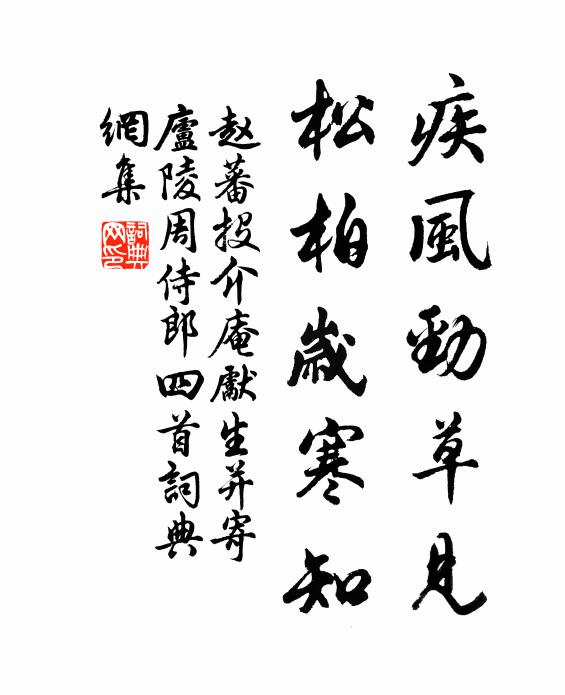 疾風勁草見
松柏歲寒知
赵蕃投介庵獻生并寄
廬陵周侍郎四首詞典
網集
詞典網印